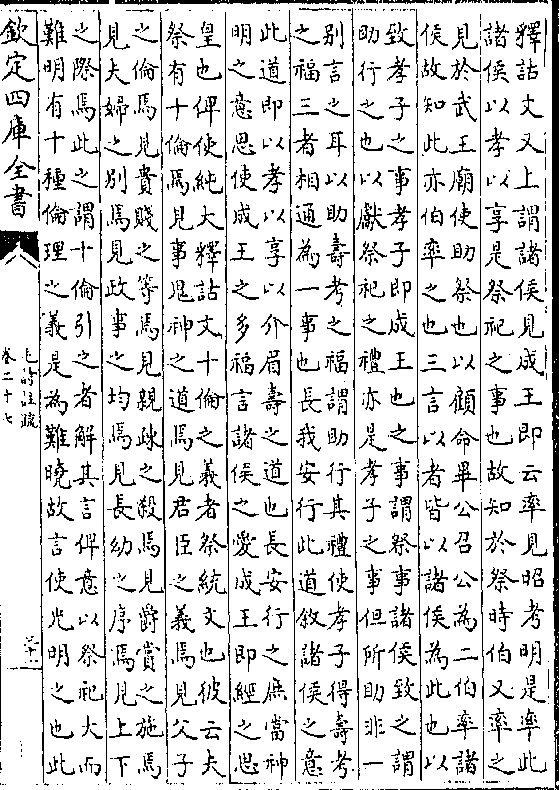 釋詁文又上謂諸侯見成王即云率見昭考明是率此
諸侯以孝以享是祭祀之事也故知於祭時伯又率之
見於武王廟使助祭也以顧命畢公召公為二伯率諸
侯故知此亦伯率之也三言以者皆以諸侯為此也以
致孝子之事孝子即成王也之事謂祭事諸侯致之謂
助行之也以獻祭祀之禮亦是孝子之事但所助非一
別言之耳以助壽考之福謂助行其禮使孝子得壽考
之福三者相通為一事也長我安行此道敘諸侯之意
此道即以孝以享以介眉壽之道也長安行之庶當神
明之意思使成王之多福言諸侯之愛成王即經之思
皇也俾使純大釋詁文十倫之義者祭統文也彼云夫
祭有十倫焉見事鬼神之道焉見君臣之義焉見父子
之倫焉見貴賤之等焉見親疎之殺焉見爵賞之施焉
見夫婦之別焉見政事之均焉見長幼之序焉見上下
之際焉此之謂十倫引之者解其言俾意以祭祀大而
難明有十種倫理之義是為難曉故言使光明之也此
欽定四庫全書
毛詩注疏
卷二十七